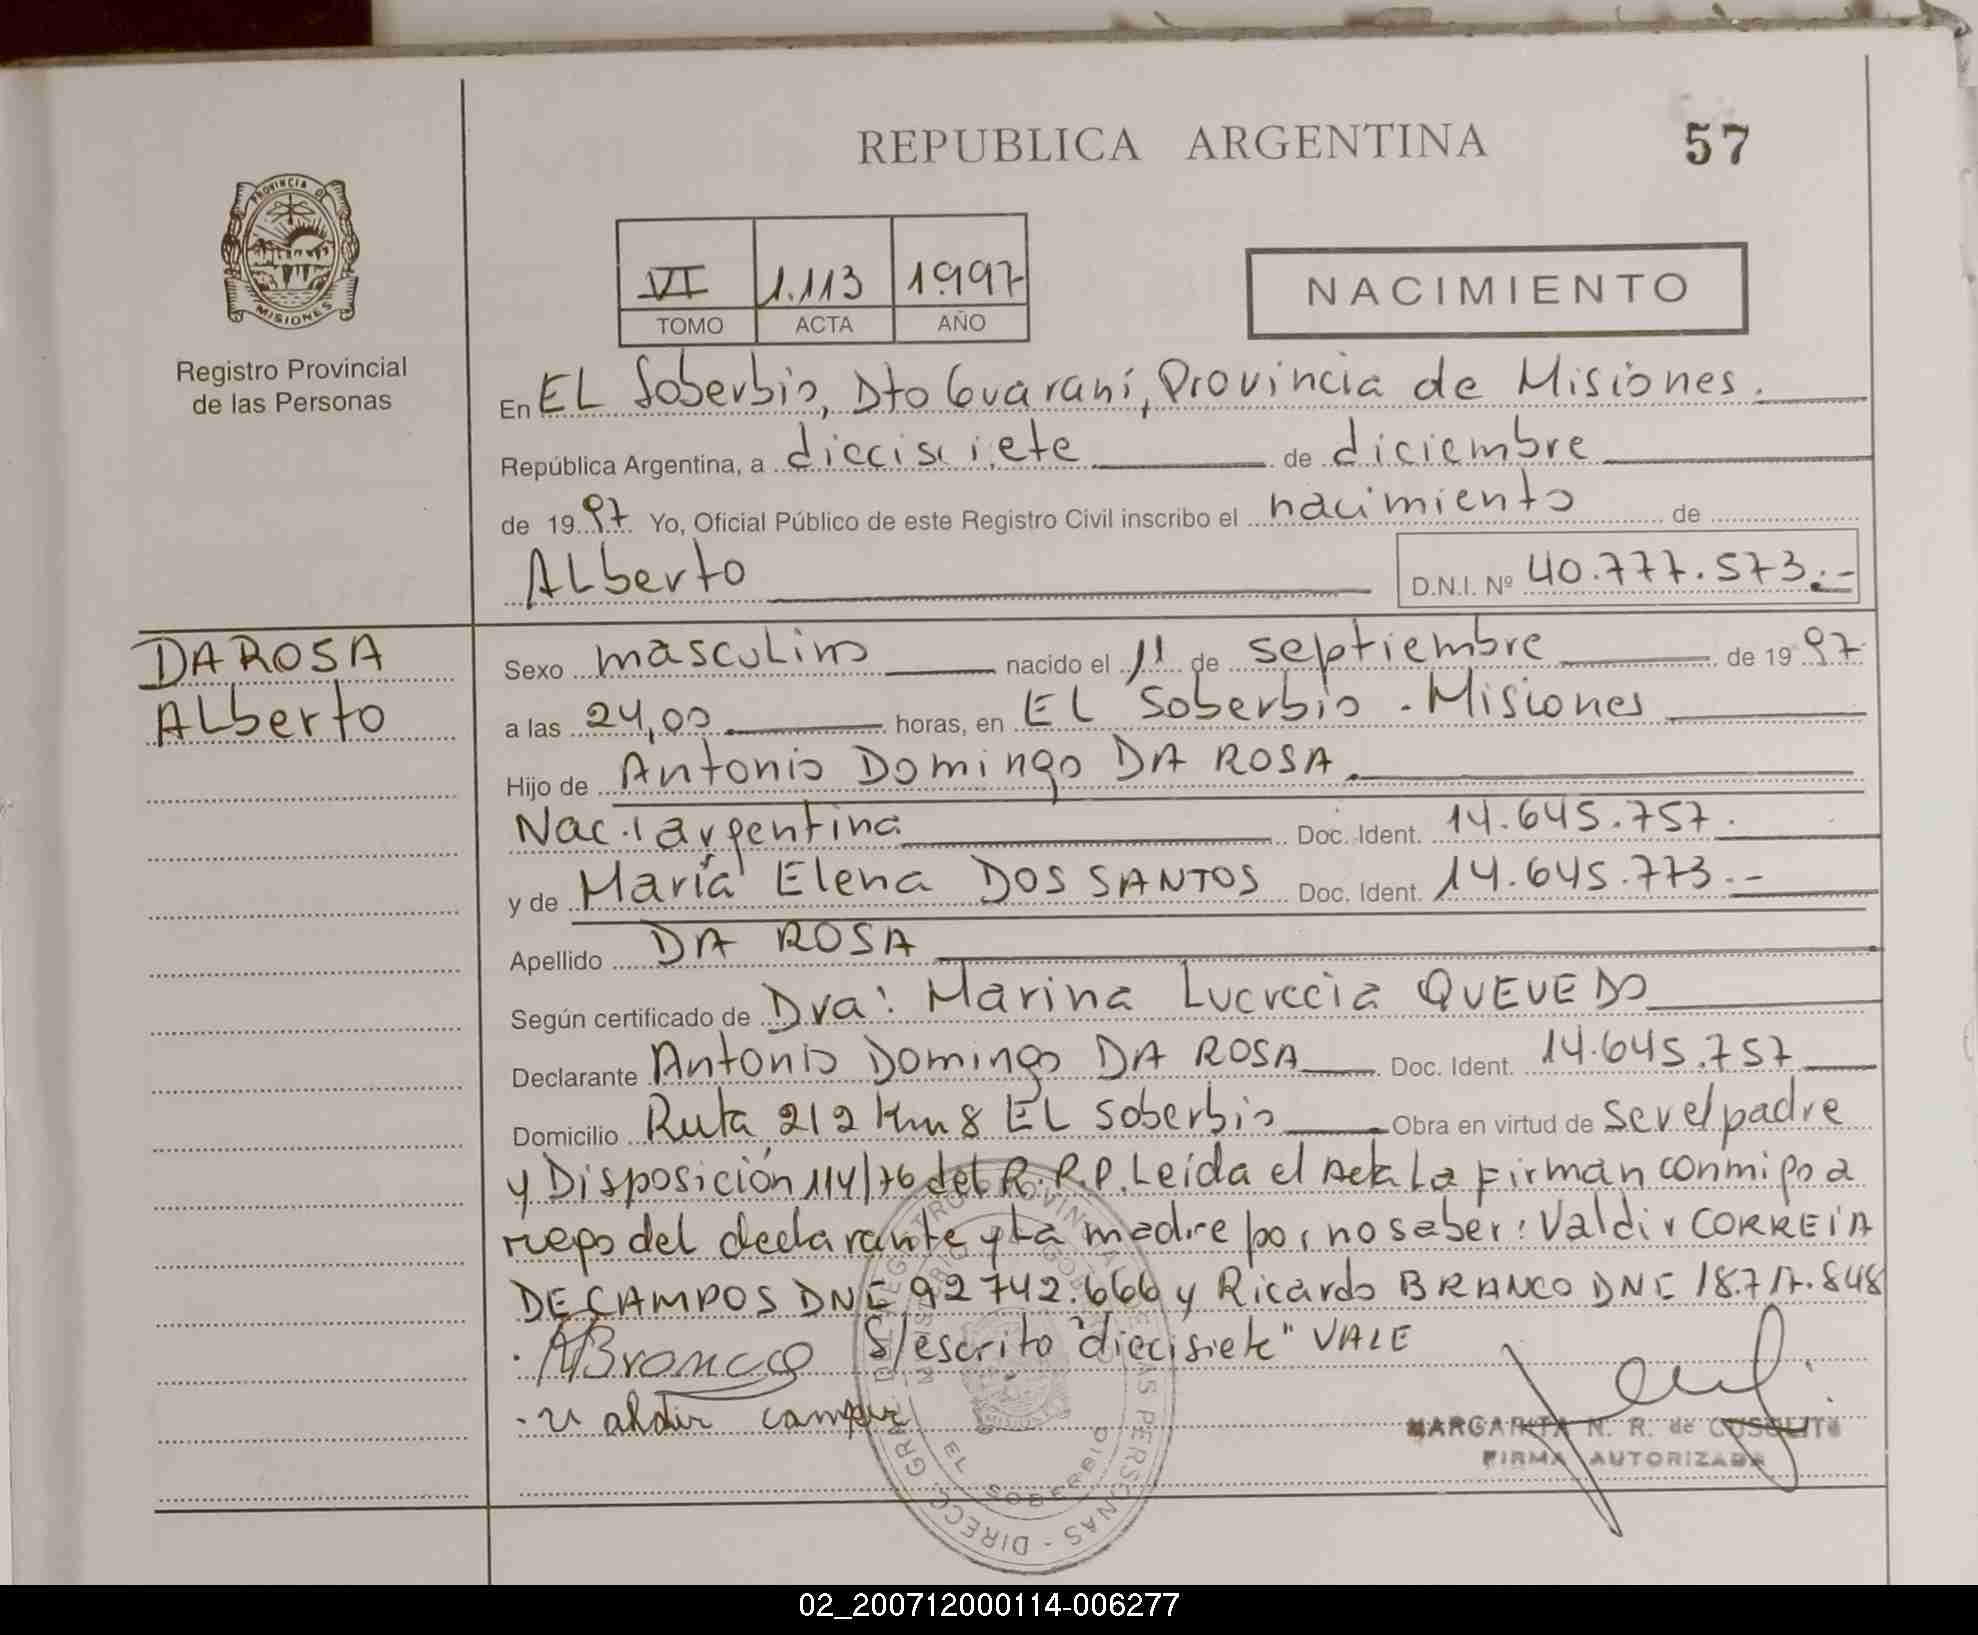 REPUBLICA ARGENTINA
57
PROVINCIA DE
MISIONES
Registro Provincial
de las Personas
VI 1.113 1997
TOMO ACTA AÑO
NACIMIENTO
En EL Soberbio, Dto Guaraní, Provincia de Misiones.
República Argentina, a diecisiete de diciembre
de 1997 Yo, Oficial Público de este Registro Civil inscribo el nacimiento de
ALberto D.N.I. Nº 40.777.573.-
DA ROSA
ALberto
Sexo masculino nacido el 11 de septiembre de 1997
a las 24,00 horas, en EL Soberbio - Misiones
Hijo de Antonio Domingo DA ROSA
Nac. argentina Doc. Ident. 14.645.757.
y de María Elena DOS SANTOS Doc. Ident. 14.645.773.-
Apellido DA ROSA
Según certificado de Dra: Marina Lucrecia QUEVEDO
Declarante Antonio Domingo DA ROSA Doc. Ident. 14.645.757
Domicilio Ruta 212 Km 8 EL Soberbio Obra en virtud de ser el padre
y Disposición 114/76 del R.R.P. Leída el Acta La Firman conmigo a
ruego del declarante y La madre por no saber: Valdir CORREIA
DE CAMPOS DNI 92742.666 y Ricardo BRANCO DNI 18.717.848
S/escrito "diecisiete" VALE
Branco
valdir
MARGARITA N. R. de
FIRMA AUTORIZADA
EL SOBERBIO
02_200712000114-006277